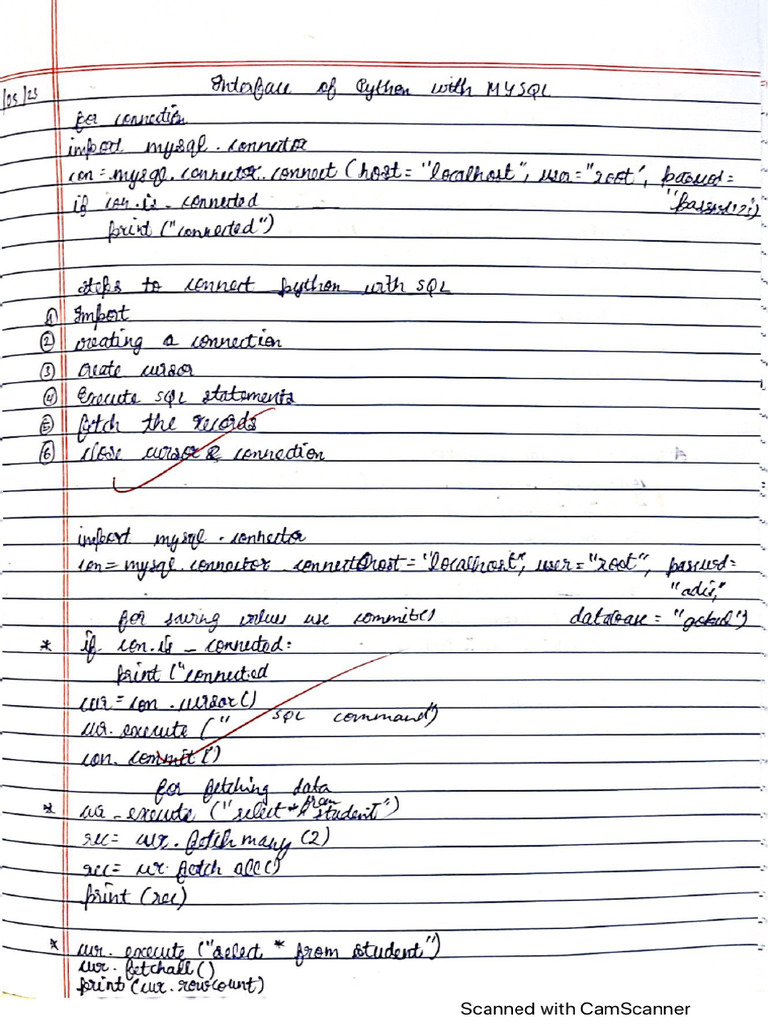 /05/23
Interface of Python with MYSQL
for connection
import mysql.connector
con=mysql.connector.connect (host="localhost", user="root", passwd=
if con.is_connected
print ("connected")
steps to connect python with SQL
① Import
② creating a connection
③ create cursor
④ Execute SQL statements
⑤ fetch the records
⑥ close cursor & connection
import mysql.connector
con= mysql.connector.connect(host="localhost", user="root", passwd=
for saving values use commit() database="gokul")
* if con.is_connected:
print ("connected
cur=con.cursor()
cur.execute (" SQL command")
con.commit()
for fetching data
* cur.execute ("select * from student")
rec= cur.fetch many (2)
rec= cur.fetch all()
print (rec)
* cur.execute ("select * from student")
cur.fetchall()
print (cur.rowcount)
Scanned with CamScanner